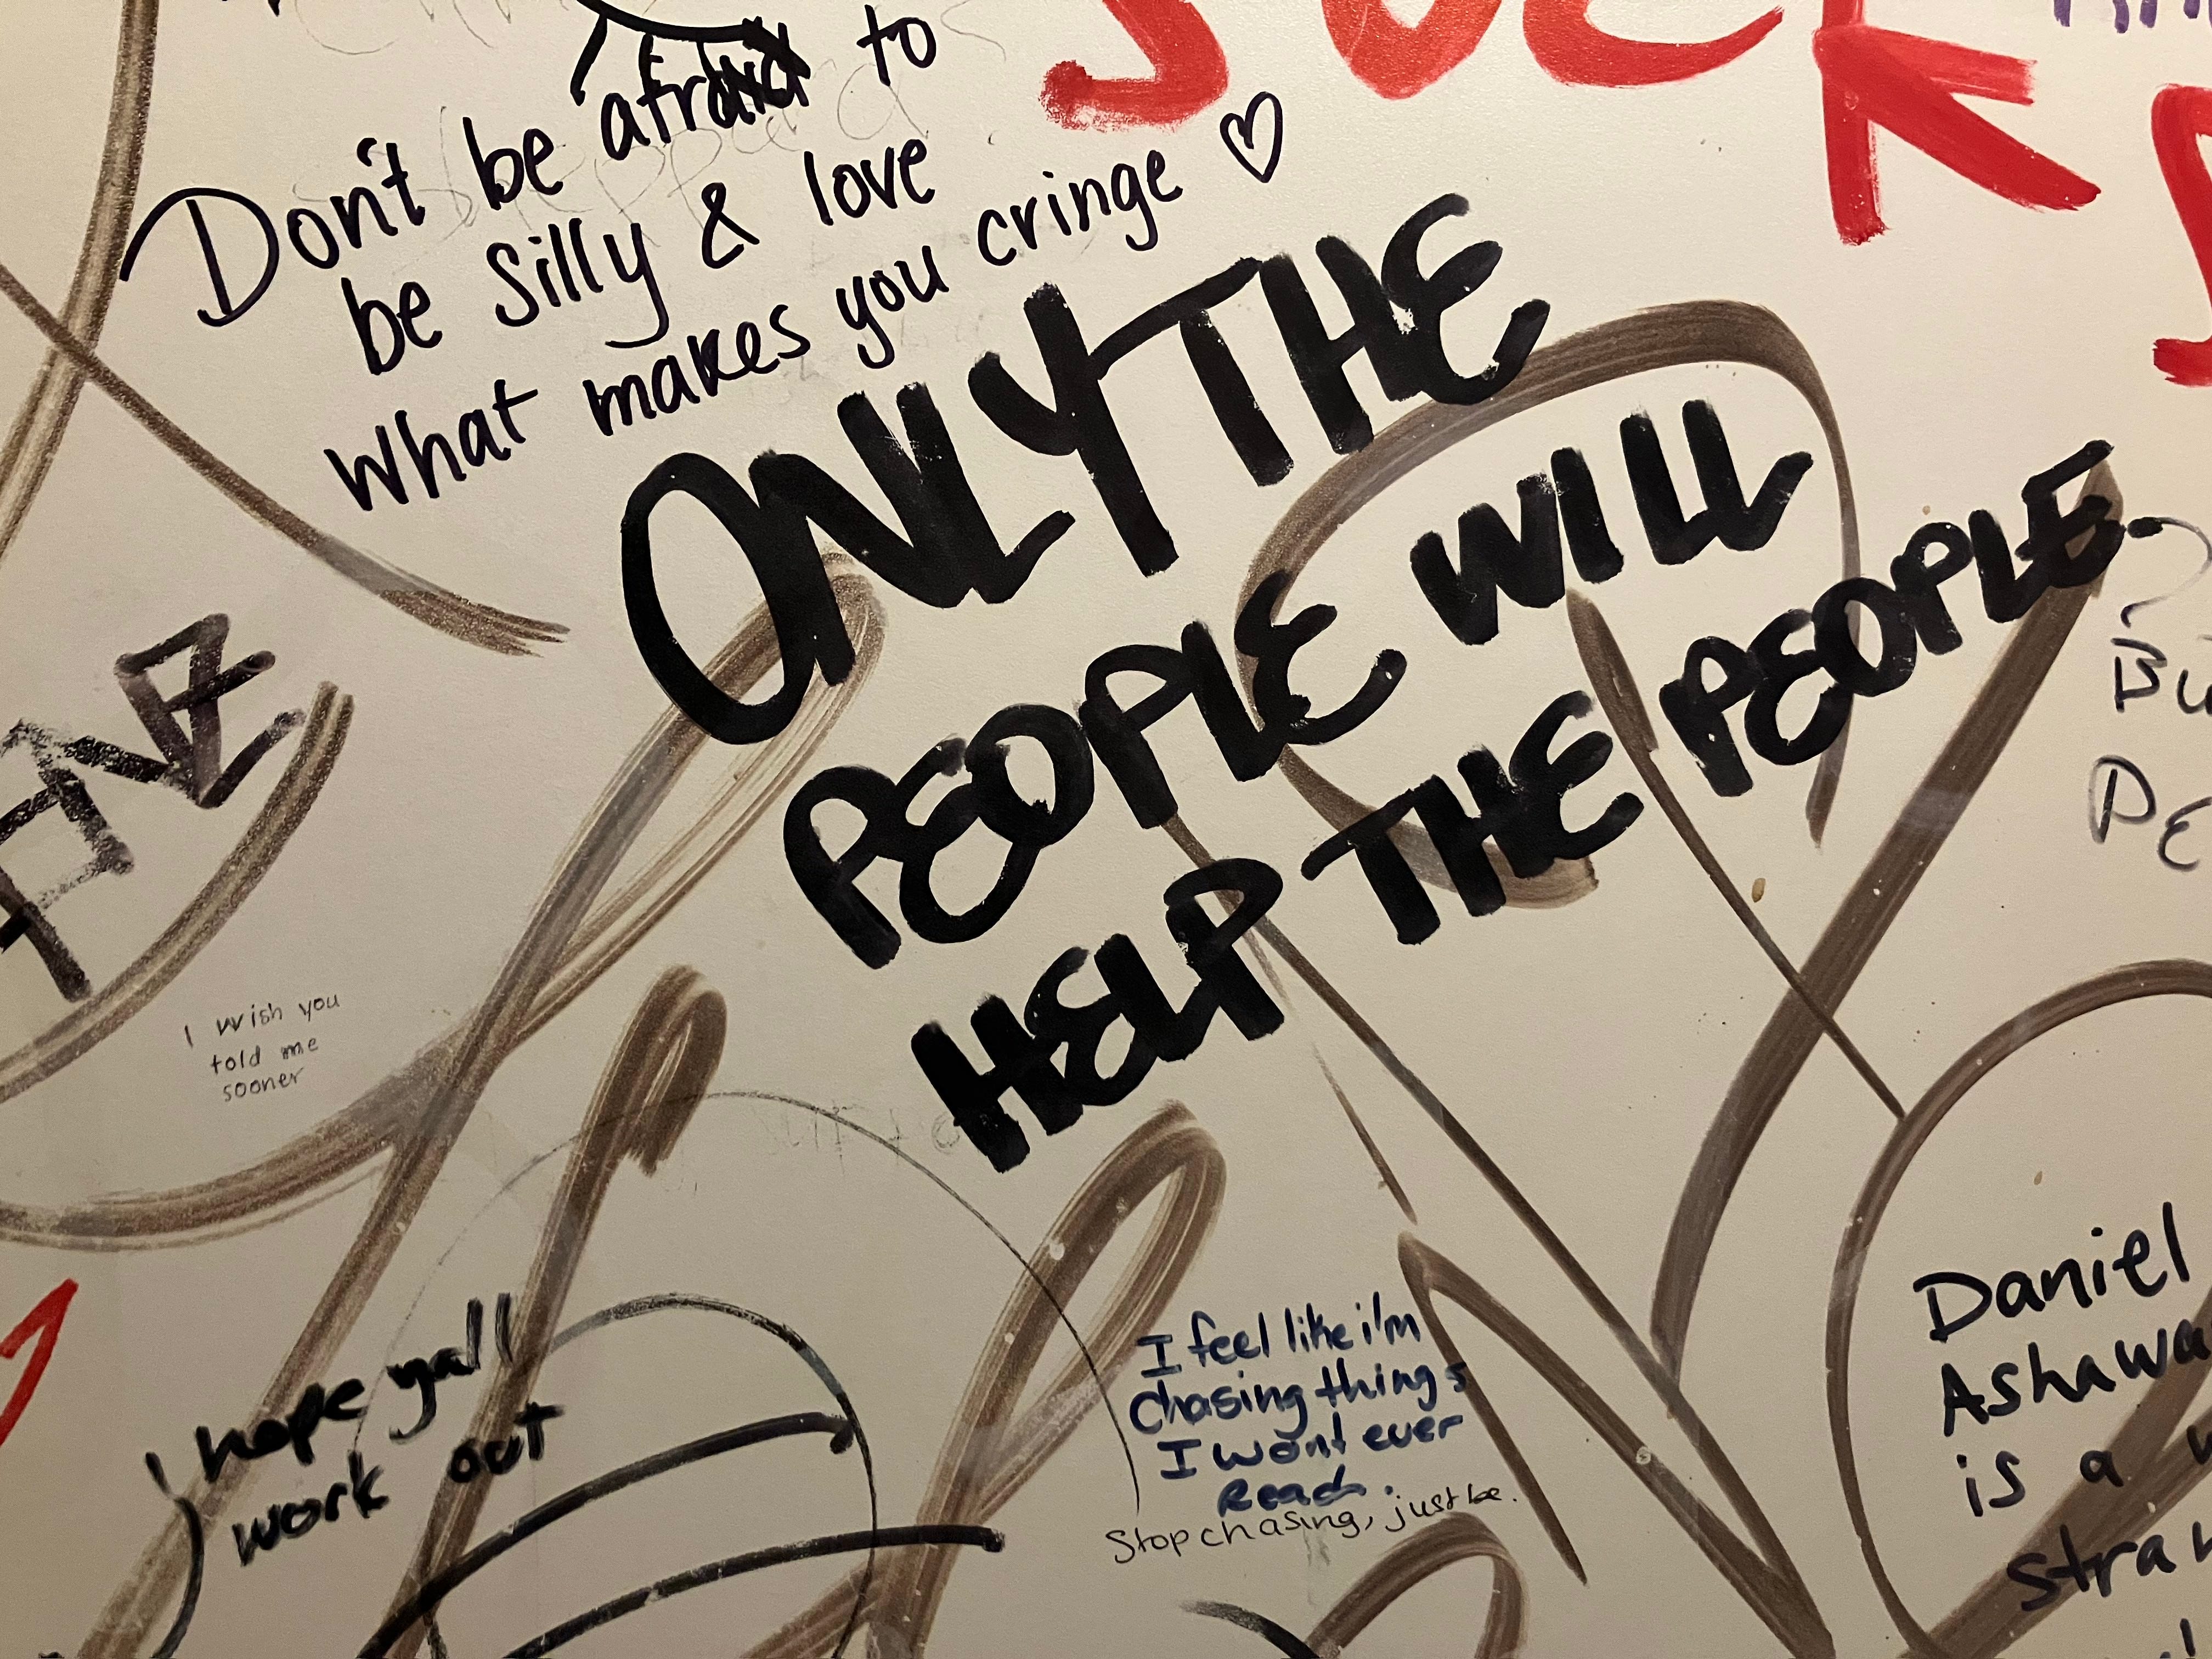 SUCK
Don't be afraid to
be Silly & love
what makes you cringe ♡
ONLY THE
PEOPLE WILL
HELP THE PEOPLE.
I wish you
told me
sooner
i hope yall
work out
I feel like i'm
chasing things
I wont ever
Reach.
Stop chasing, just be.
Daniel
is a